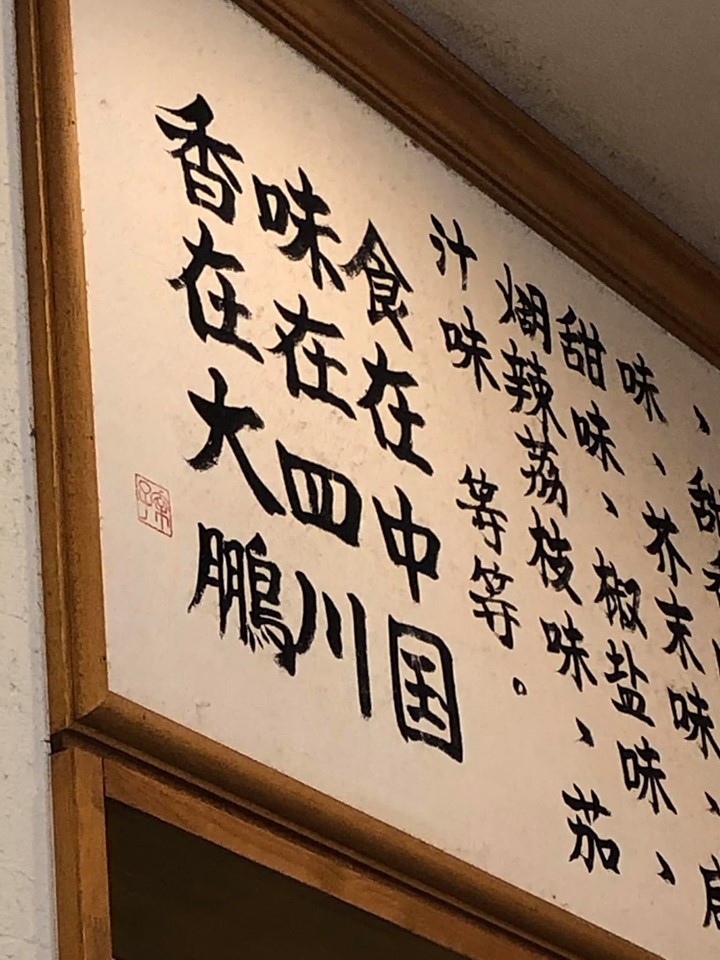 味、芥末味、
甜味、椒盐味、
煳辣荔枝味、茄
汁味 等等。
食在中国
味在四川
香在大鹏